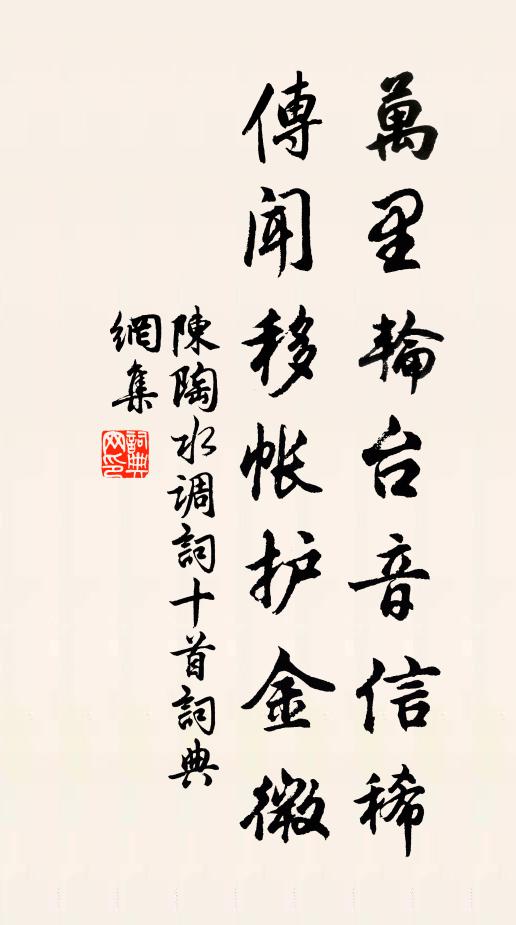 萬里輪台音信稀
傳闻移帐护金微
陳陶水调詞十首詞典
網集
詞典
网印